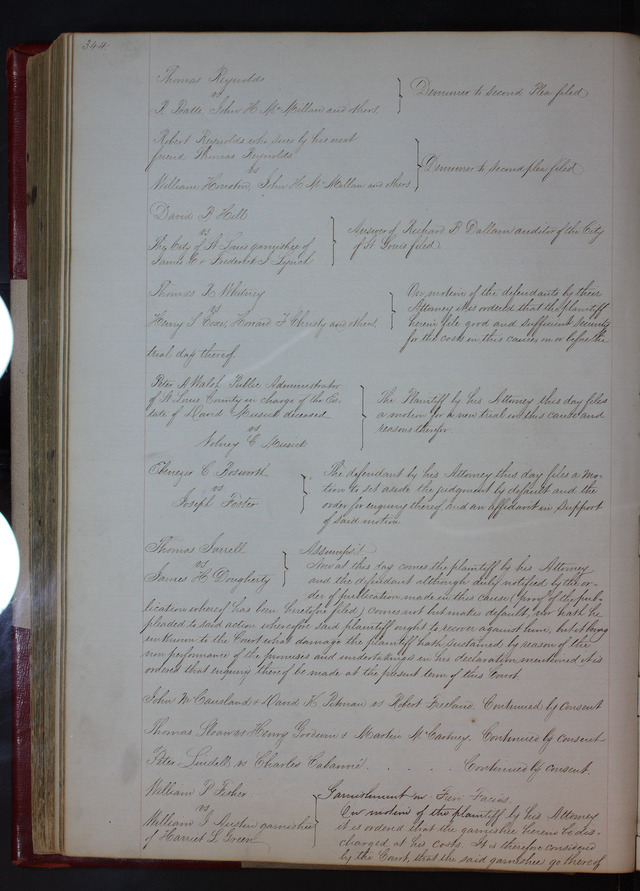 344
Thomas Reynolds
vs
John H. McMillan and others
Demurrer to Second Plea filed
Robert Reynolds who sues by his next
friend Thomas Reynolds
vs
William Houston, John H. McMillan and others
Demurrer to second plea filed
David B Hill
vs
The City of St Louis garnishee of
James C & Frederick J Lynch
Answer of Richard B Dallam auditor of the City
of St Louis filed
Thomas R Whitney
vs
Henry S Coxe, Howard F Christy and others
On motion of the defendants by their
Attorney it is ordered that the plaintiff
herein file good and sufficient Security
for the costs in this cause on or before the
trial day thereof.
Peter A Walsh Public Administrator
of St Louis County in charge of the Es-
tate of David Musick deceased
vs
Volney C Musick
The Plaintiff by his Attorney this day files
a motion for a new trial in this cause and
reasons therefor.
Ebenezer C Bosworth
vs
Joseph Foster
The defendant by his Attorney this day files a mo-
tion to set aside the judgment by default and the
order for enquiry thereof and an affidavit in support
of said motion
Thomas Farrell
vs
James H. Dougherty
Assumpsit
Now at this day comes the plaintiff by his Attorney
and the defendant although duly notified by the or-
der of publication made in this cause (proof of the pub-
lication whereof has been heretofore filed) comes not but makes default, nor hath he
pleaded to said action wherefore said plaintiff ought to recover against him, but it being
unknown to the Court what damage the plaintiff hath sustained by reason of the
non performance of the promises and undertakings in his declaration mentioned it is
ordered that enquiry thereof be made at the present term of this Court.
John W Causland & David K Pitman vs Robert Freeland. Continued by consent
Thomas Sloan vs Henry Goodwin & Martin McCartney. Continued by consent
Peter Lindell vs Charles Cabanné . . . . . . Continued by consent.
William P Fisher
vs
William J Austin garnishee
of Harriet L Green
Garnishment on Fieri Facias.
On motion of the plaintiff by his Attorney
it is ordered that the garnishee herein be dis-
charged at his costs. It is therefore considered
by the Court, that the said garnishee go thereof